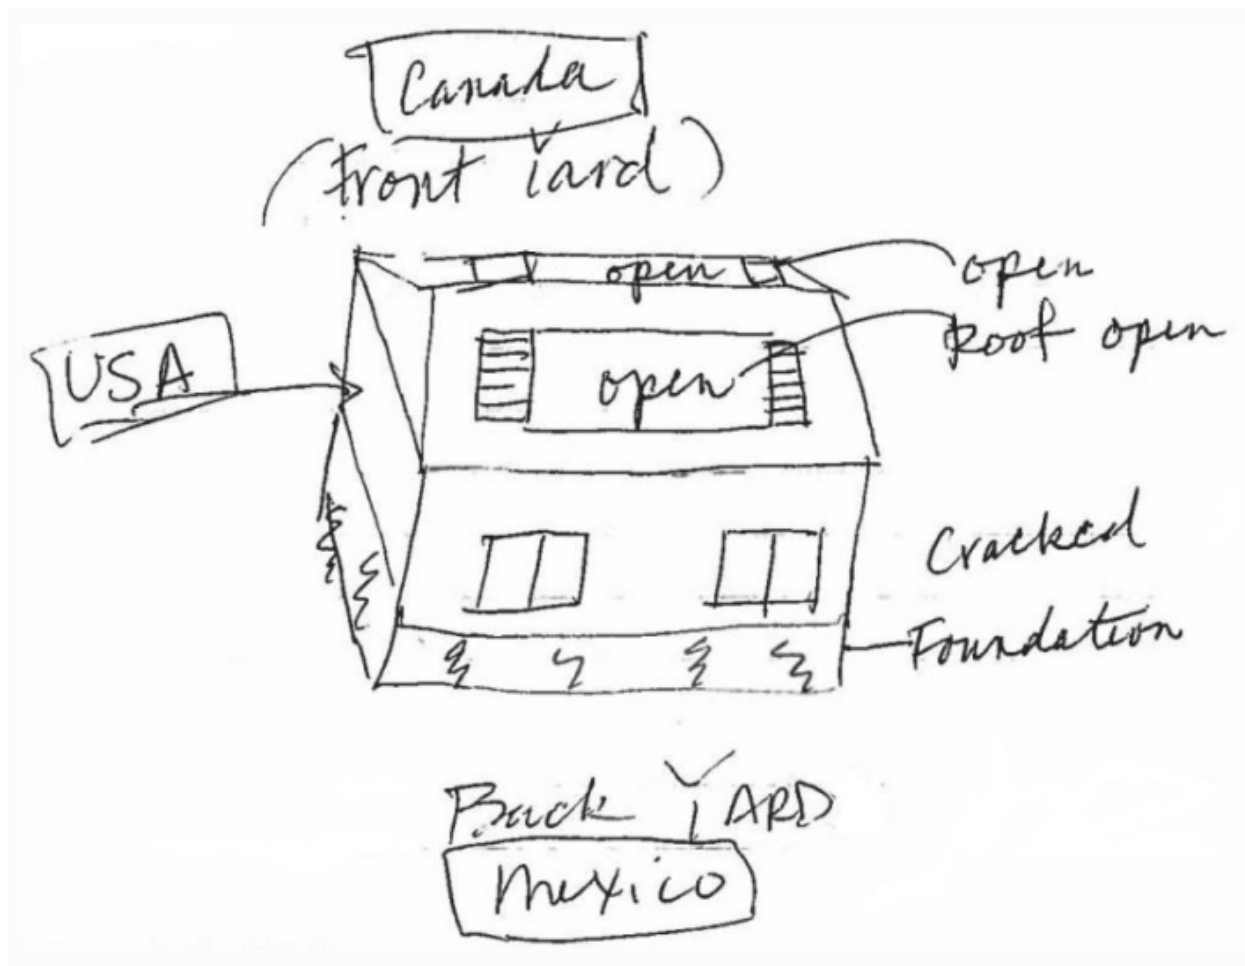 Canada
(Front Yard)
open
open
Roof open
USA
open
Cracked
Foundation
Back YARD
Mexico